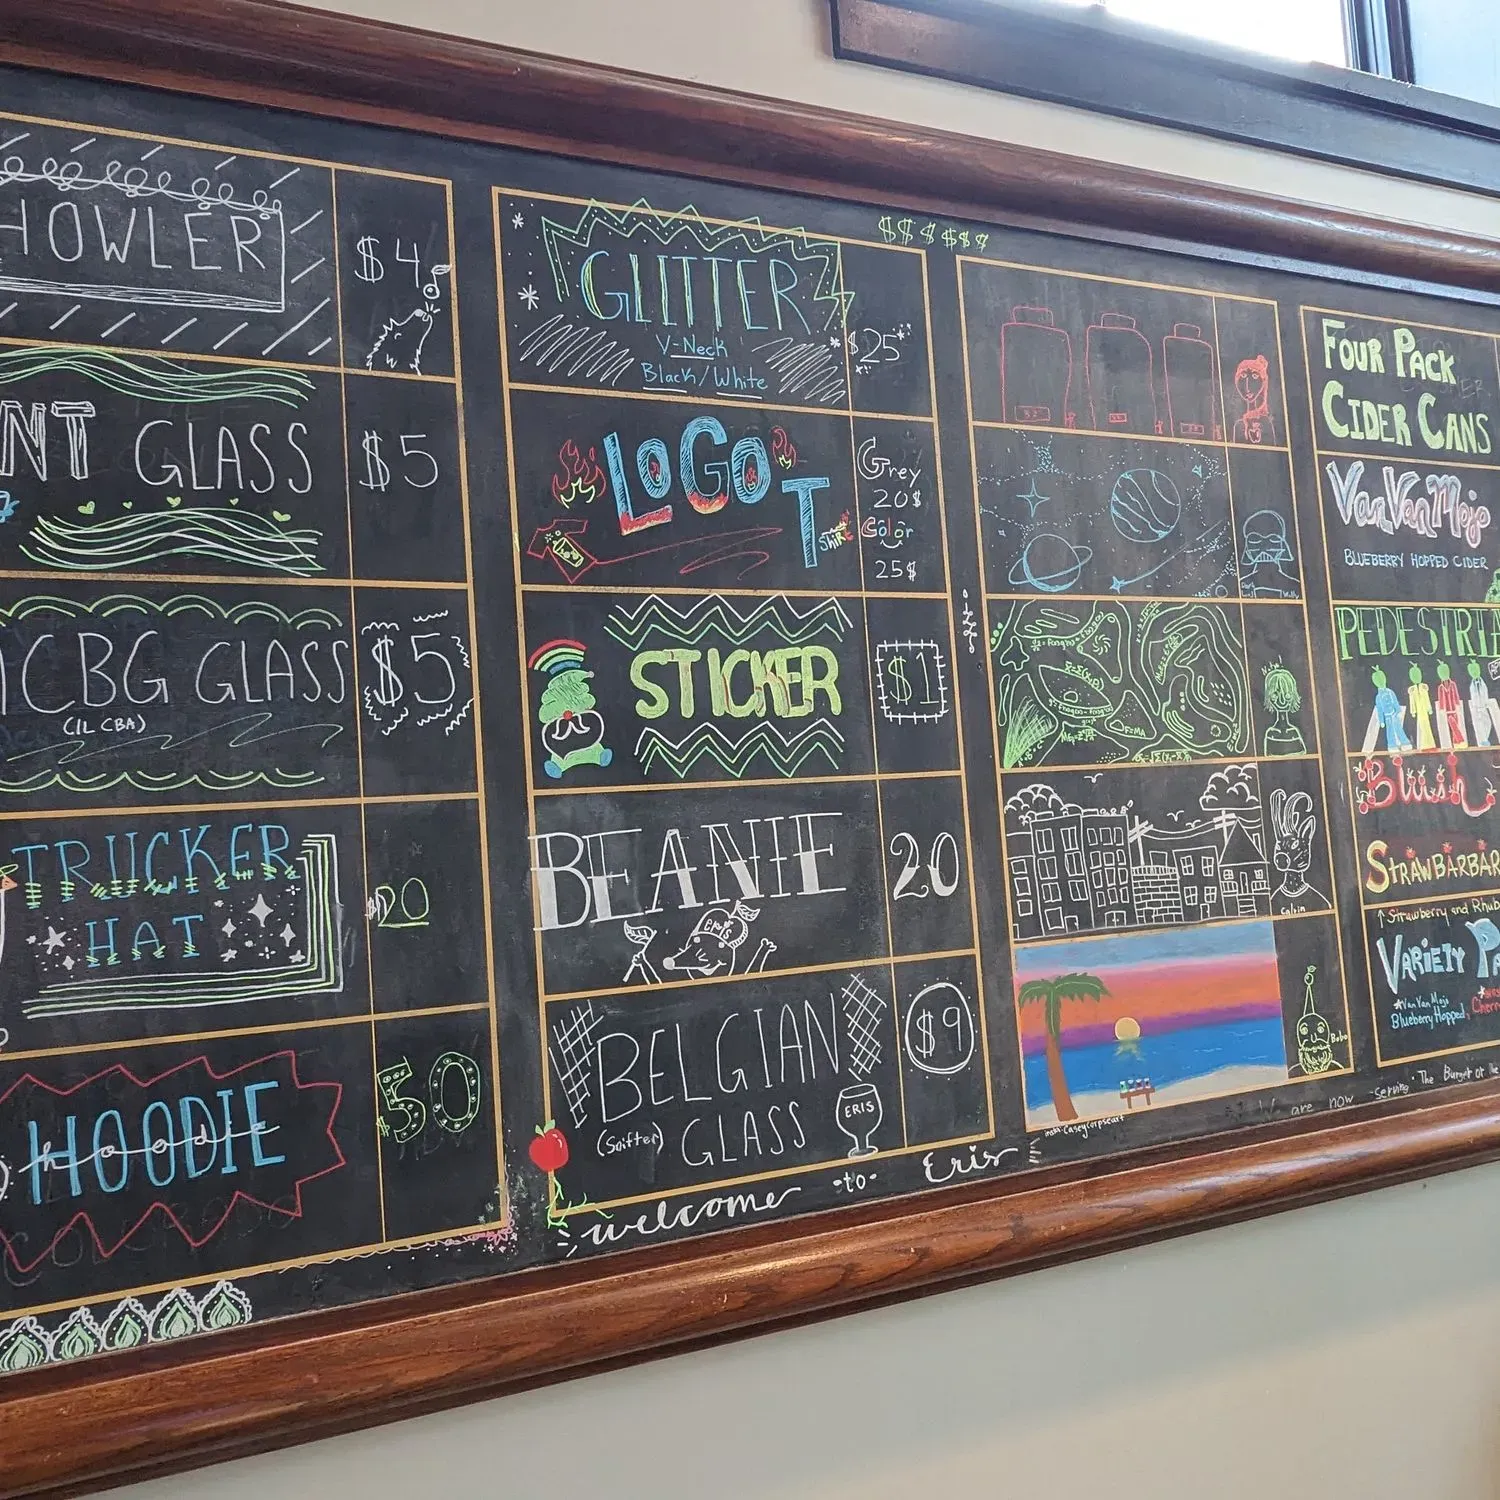 HOWLER
$4
NT GLASS
$5
CBG GLASS
(IL CBA)
$5
TRUCKER
HAT
20
HOODIE
hoodie
50
$$$$$$
GLITTER
V-Neck
Black/White
$25
LOGO
T
SHIRT
Grey
20$
Color
25$
STICKER
$1
BEANIE
20
BELGIAN
(Snifter)
GLASS
ERIS
$9
welcome -to- Eris
F=MA
Calvin
Bobo
insta: CaseyCorpseart
FOUR PACK
CIDER CANS
VanVanMojo
BLUEBERRY HOPPED CIDER
PEDESTRIA
Blush
STRAWBARBAR
↑ Strawberry and Rhub
VARIETY PA
*VanVan Mojo
Blueberry Hopped,
Cherr
We are now serving The Burger at the